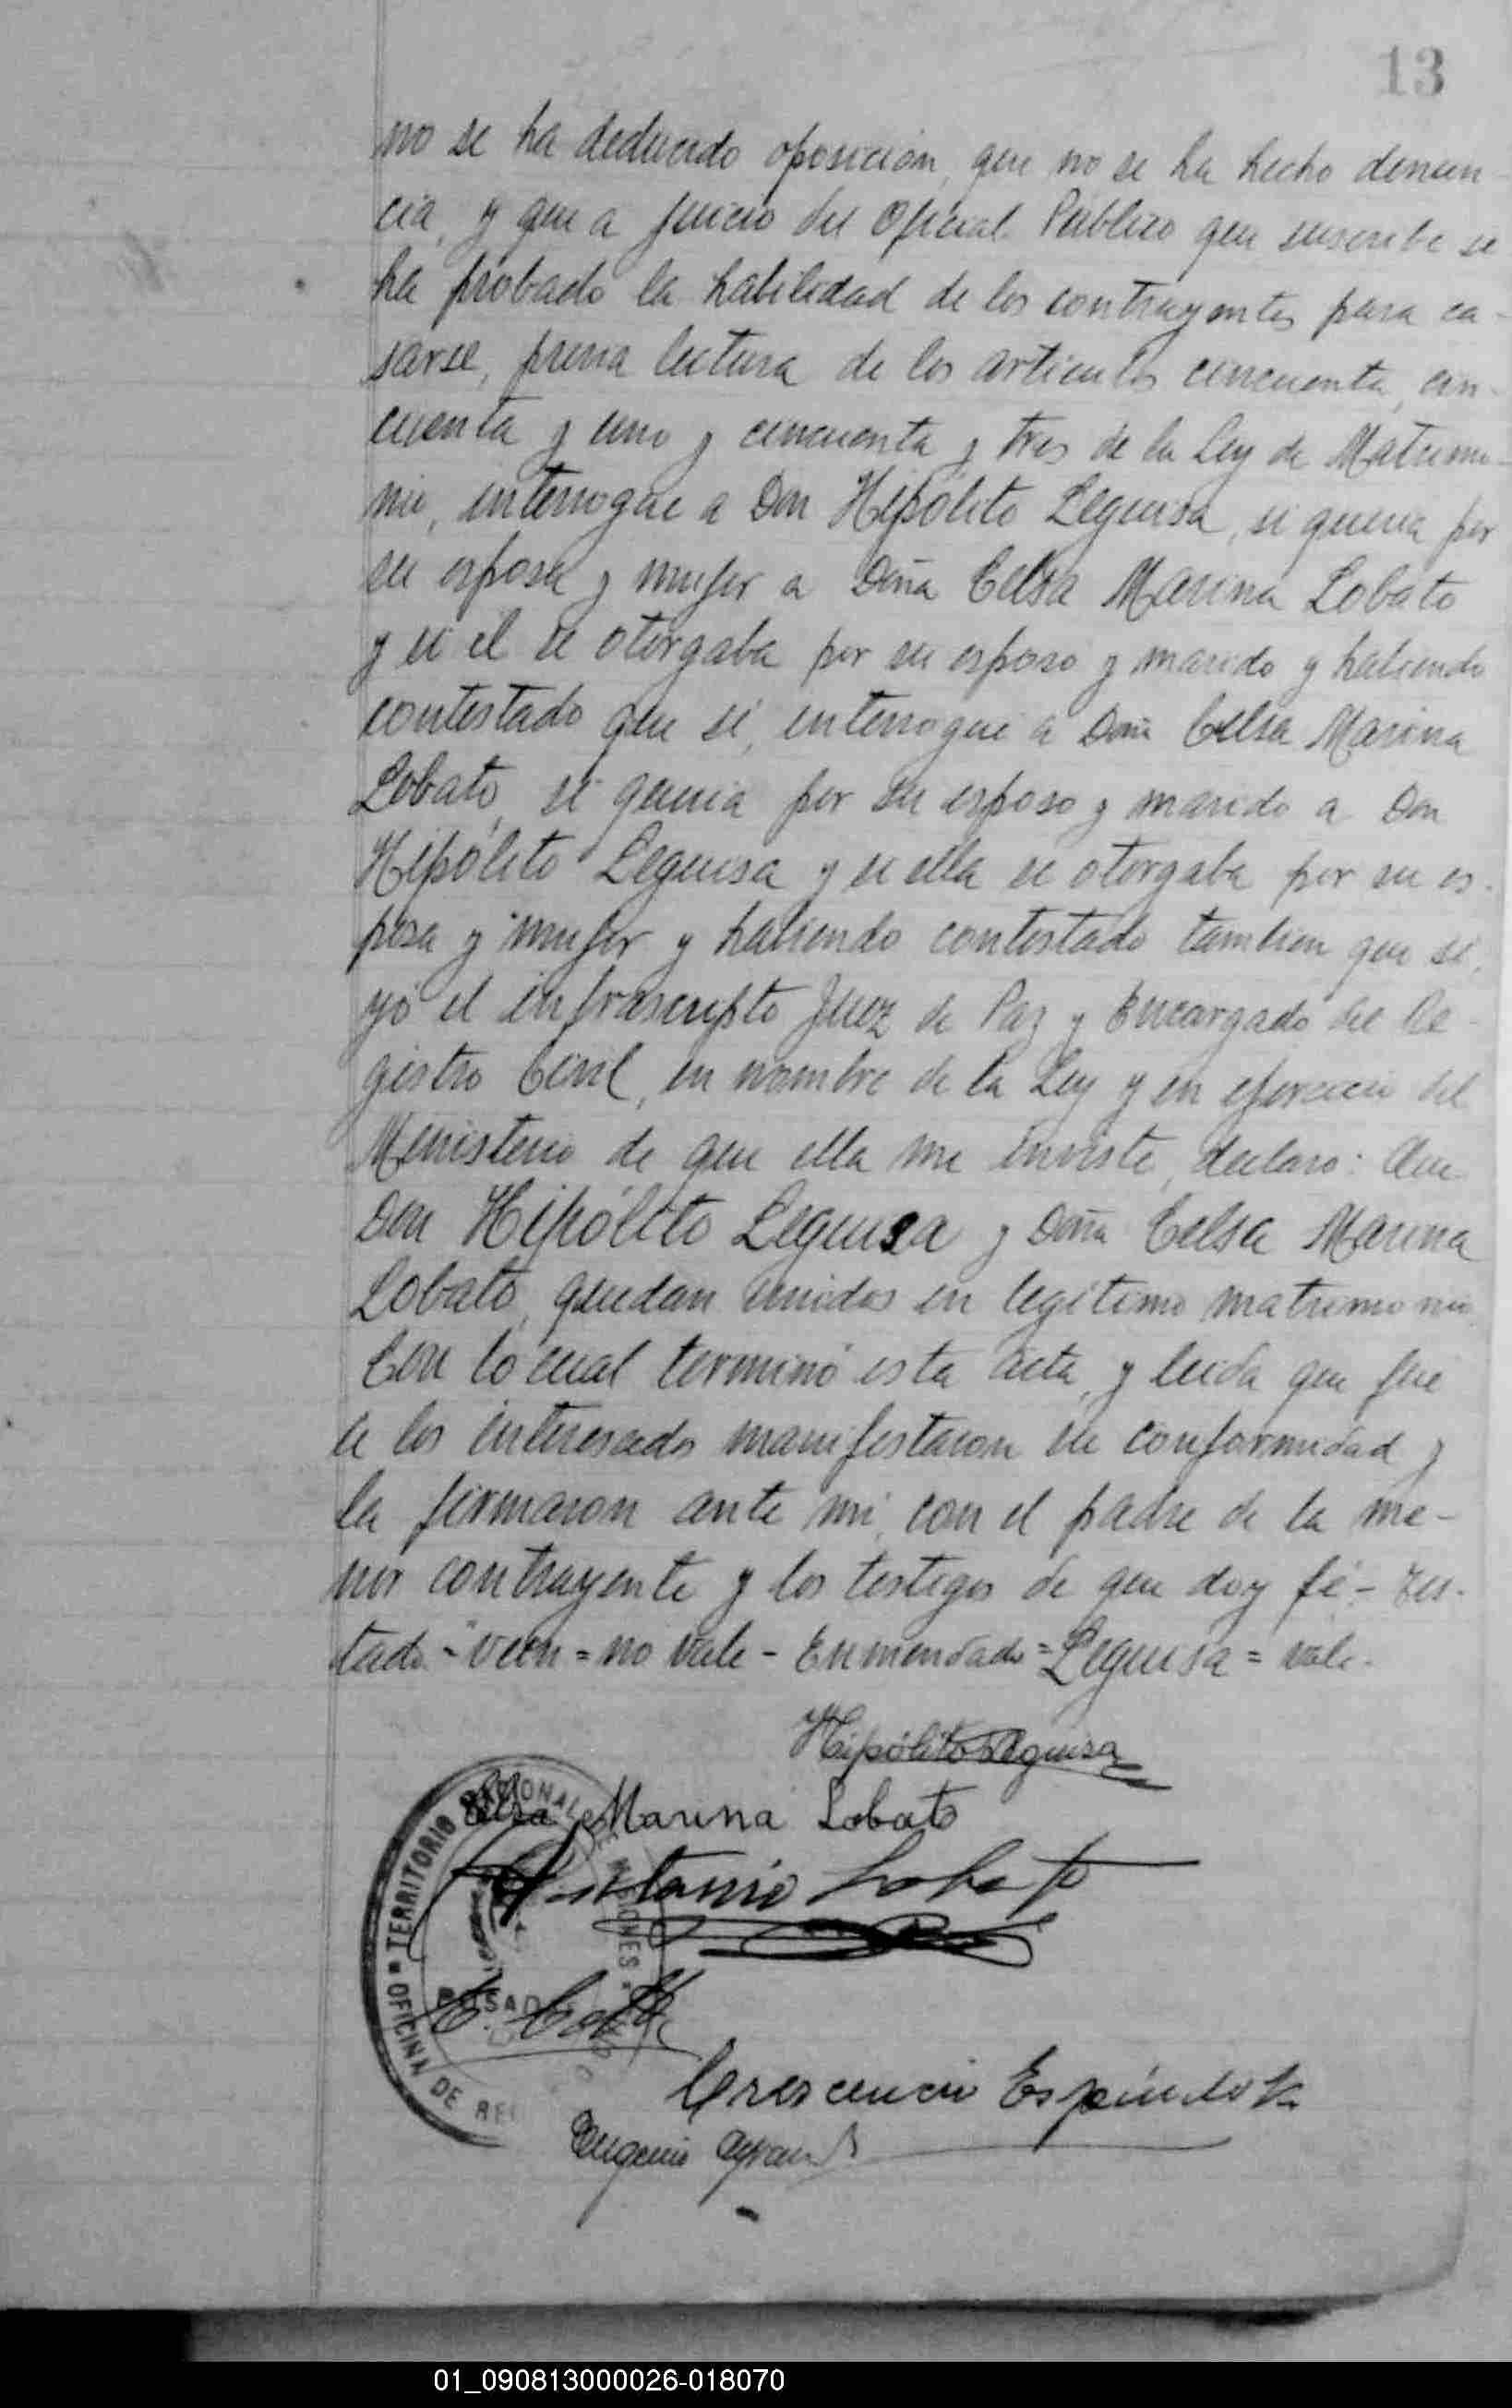 13
no se ha deducido oposición, que no se ha hecho denun-
cia, y que a juicio del Oficial Público que suscribe se
ha probado la habilidad de los contrayentes para ca-
sarse, previa lectura de los articulos cincuenta, cin-
cuenta y uno y cincuenta y tres de la Ley de Matrimo-
nio, interrogue a Don Hipólito Leguisa, si queria por
su esposa y mujer a Doña Celsa Marina Lobato
y si el se otorgaba por su esposo y marido y habiendo
contestado que si, interrogué a Doña Celsa Marina
Lobato, si queria por su esposo y marido a Don
Hipólito Leguisa y si ella se otorgaba por su es-
posa y mujer y habiendo contestado tambien que si,
yó el infrascripto Juez de Paz y Encargado del Re-
gistro Civil, en nombre de la Ley y en ejercicio del
Ministerio de que ella me inviste, declaro: Que
Don Hipólito Leguisa y Doña Celsa Marina
Lobato, quedan unidos en legítimo matrimonio
Con lo cual terminó esta acta, y leida que fue
a los interesados manifestaron su conformidad y
la firmaron ante mi, con el padre de la me-
nor contrayente y los testigos de que doy fé - Tes-
tado - "veen = no vale - Enmendado = Leguisa = vale.
Hipólito Leguisa
Celsa Marina Lobato
Antonio Lobato
TERRITORIO NACIONAL DE MISIONES
POSADAS
OFICINA DE RE
Crescencio Espíndola
Eugenio
01_090813000026-018070